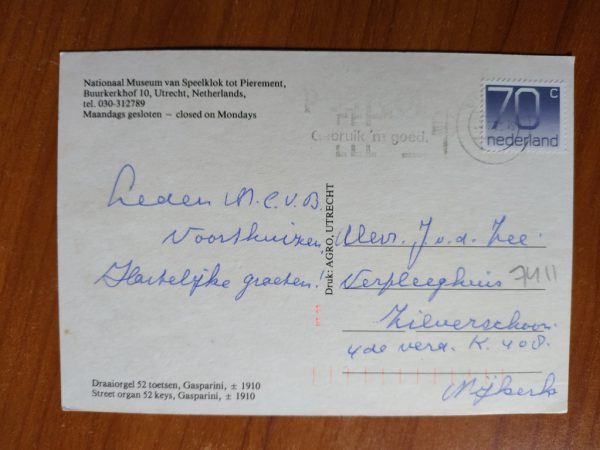 Nationaal Museum van Speelklok tot Pierement,
Buurkerkhof 10, Utrecht, Netherlands,
tel. 030-312789
Maandags gesloten – closed on Mondays
Gebruik 'm goed.
70 c
nederland
Leden N.C.V.B.
Voorthuizen,
Hartelijke groeten!!
Druk: AGRO, UTRECHT
Mevr. J. v.d. Zee.
Verpleeghuis
7411
Zilverschoon.
4de verd. K. 408.
Nijkerk
Draaiorgel 52 toetsen, Gasparini, ± 1910
Street organ 52 keys, Gasparini, ± 1910